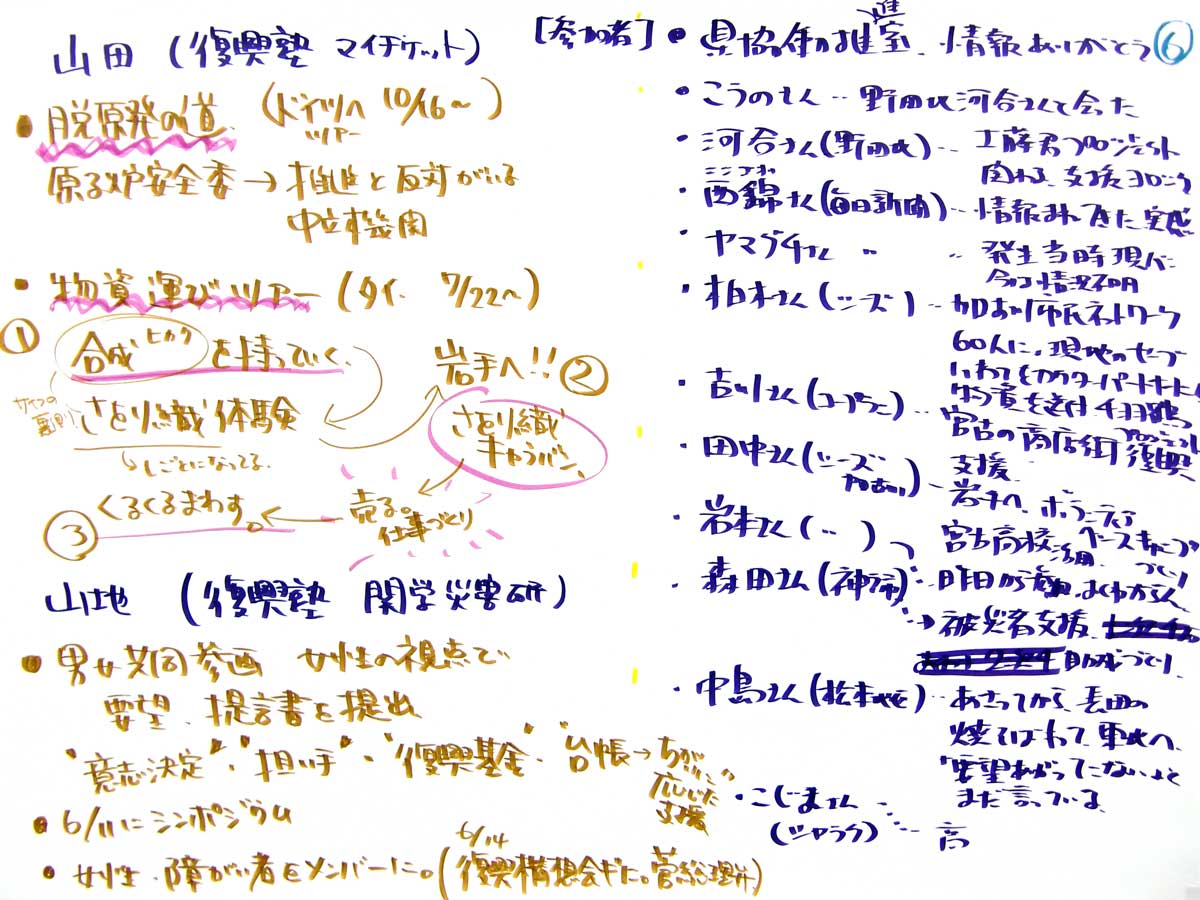 山田（復興塾 マイチケット）
脱原発の道 （ドイツへ 10/16～）
ツアー
原子炉安全委→推進と反対がいる
中立機関
物資運びツアー（タイ 7/22～）
① 合成 ヒカク を持っていく
さをり織体験
しごとになってる
岩手へ!! ②
さをり織
キャラバン
売る。
仕事づくり
③ くるくるまわす。
山地 （復興塾 関学災害研）
男女共同参画 女性の視点で
要望、提言書を提出
"意志決定"・"担い手"・"復興基金"・台帳→ちがい
に応じた
支援
6/11にシンポジウム
女性・障がい者をメンバーに。（復興構想会ギに。菅総理に）
6/14
[参加者] 県協働推進室、情報ありがとう ⑥
こうのさん‥野田氏河合さんと会った
河合さん（野田氏）‥工藤君プロジェクト
関わる、支援
西錦さん（毎日新聞）‥情報 きた実感
ヤマグチさん 〃 発生当時現バ
今は情況不明
柏木さん（シーズ）‥加古川市民ネットワーク
60人に、現地のセブ
吉川さん（コープランニング）‥
宮古の商店街復興
プロジェクト
支援
田中さん（シーズ
‥岩手へ、ボランティア
岩本さん（‥）
宮古高校 ベースキャンプ
づくり
森田さん（神 ）‥昨日から よくわからん
→被災者支援
助成づくり
中島さん（松本 ）‥あさってから
東北へ
"要望あがってこない"と
まだ言っている
こじまさん‥
（シャラク）‥高